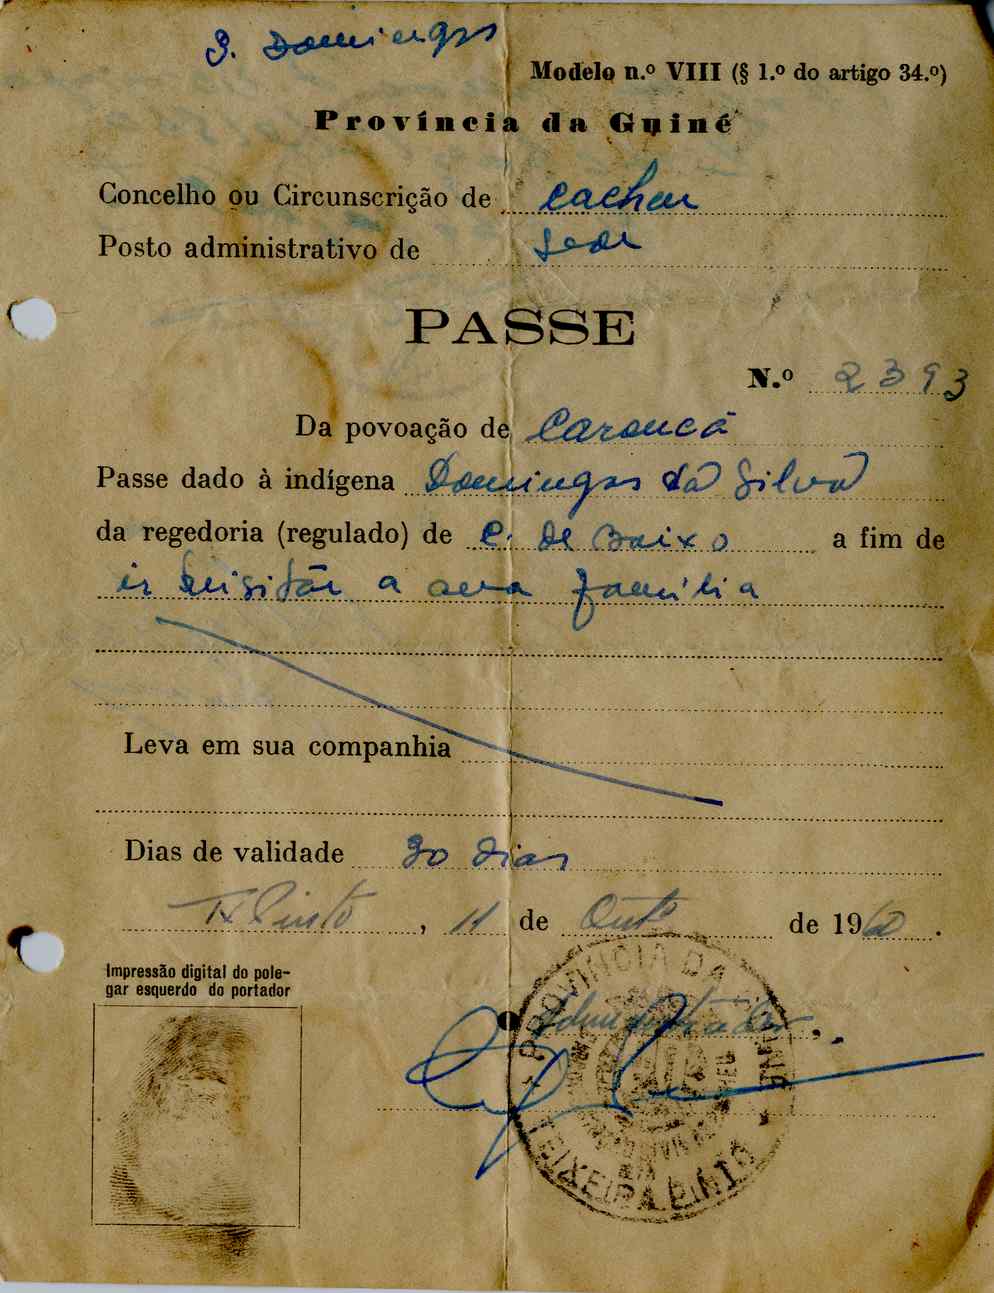 S. Domingos
Modelo n.º VIII (§ 1.º do artigo 34.º)
Província da Guiné
Concelho ou Circunscrição de Cacheu
Posto administrativo de Sede
PASSE
N.º 2393
Da povoação de Caroncá
Passe dado à indígena Domingos da Silva
da regedoria (regulado) de C. de Baixo a fim de
ir visitar a sua família
Leva em sua companhia
Dias de validade 30 dias
T. Pinto, 11 de Outº de 1960.
Impressão digital do pole-
gar esquerdo do portador
O Administrador,
PROVÍNCIA DA GUINÉ
TEIXEIRA PINTO